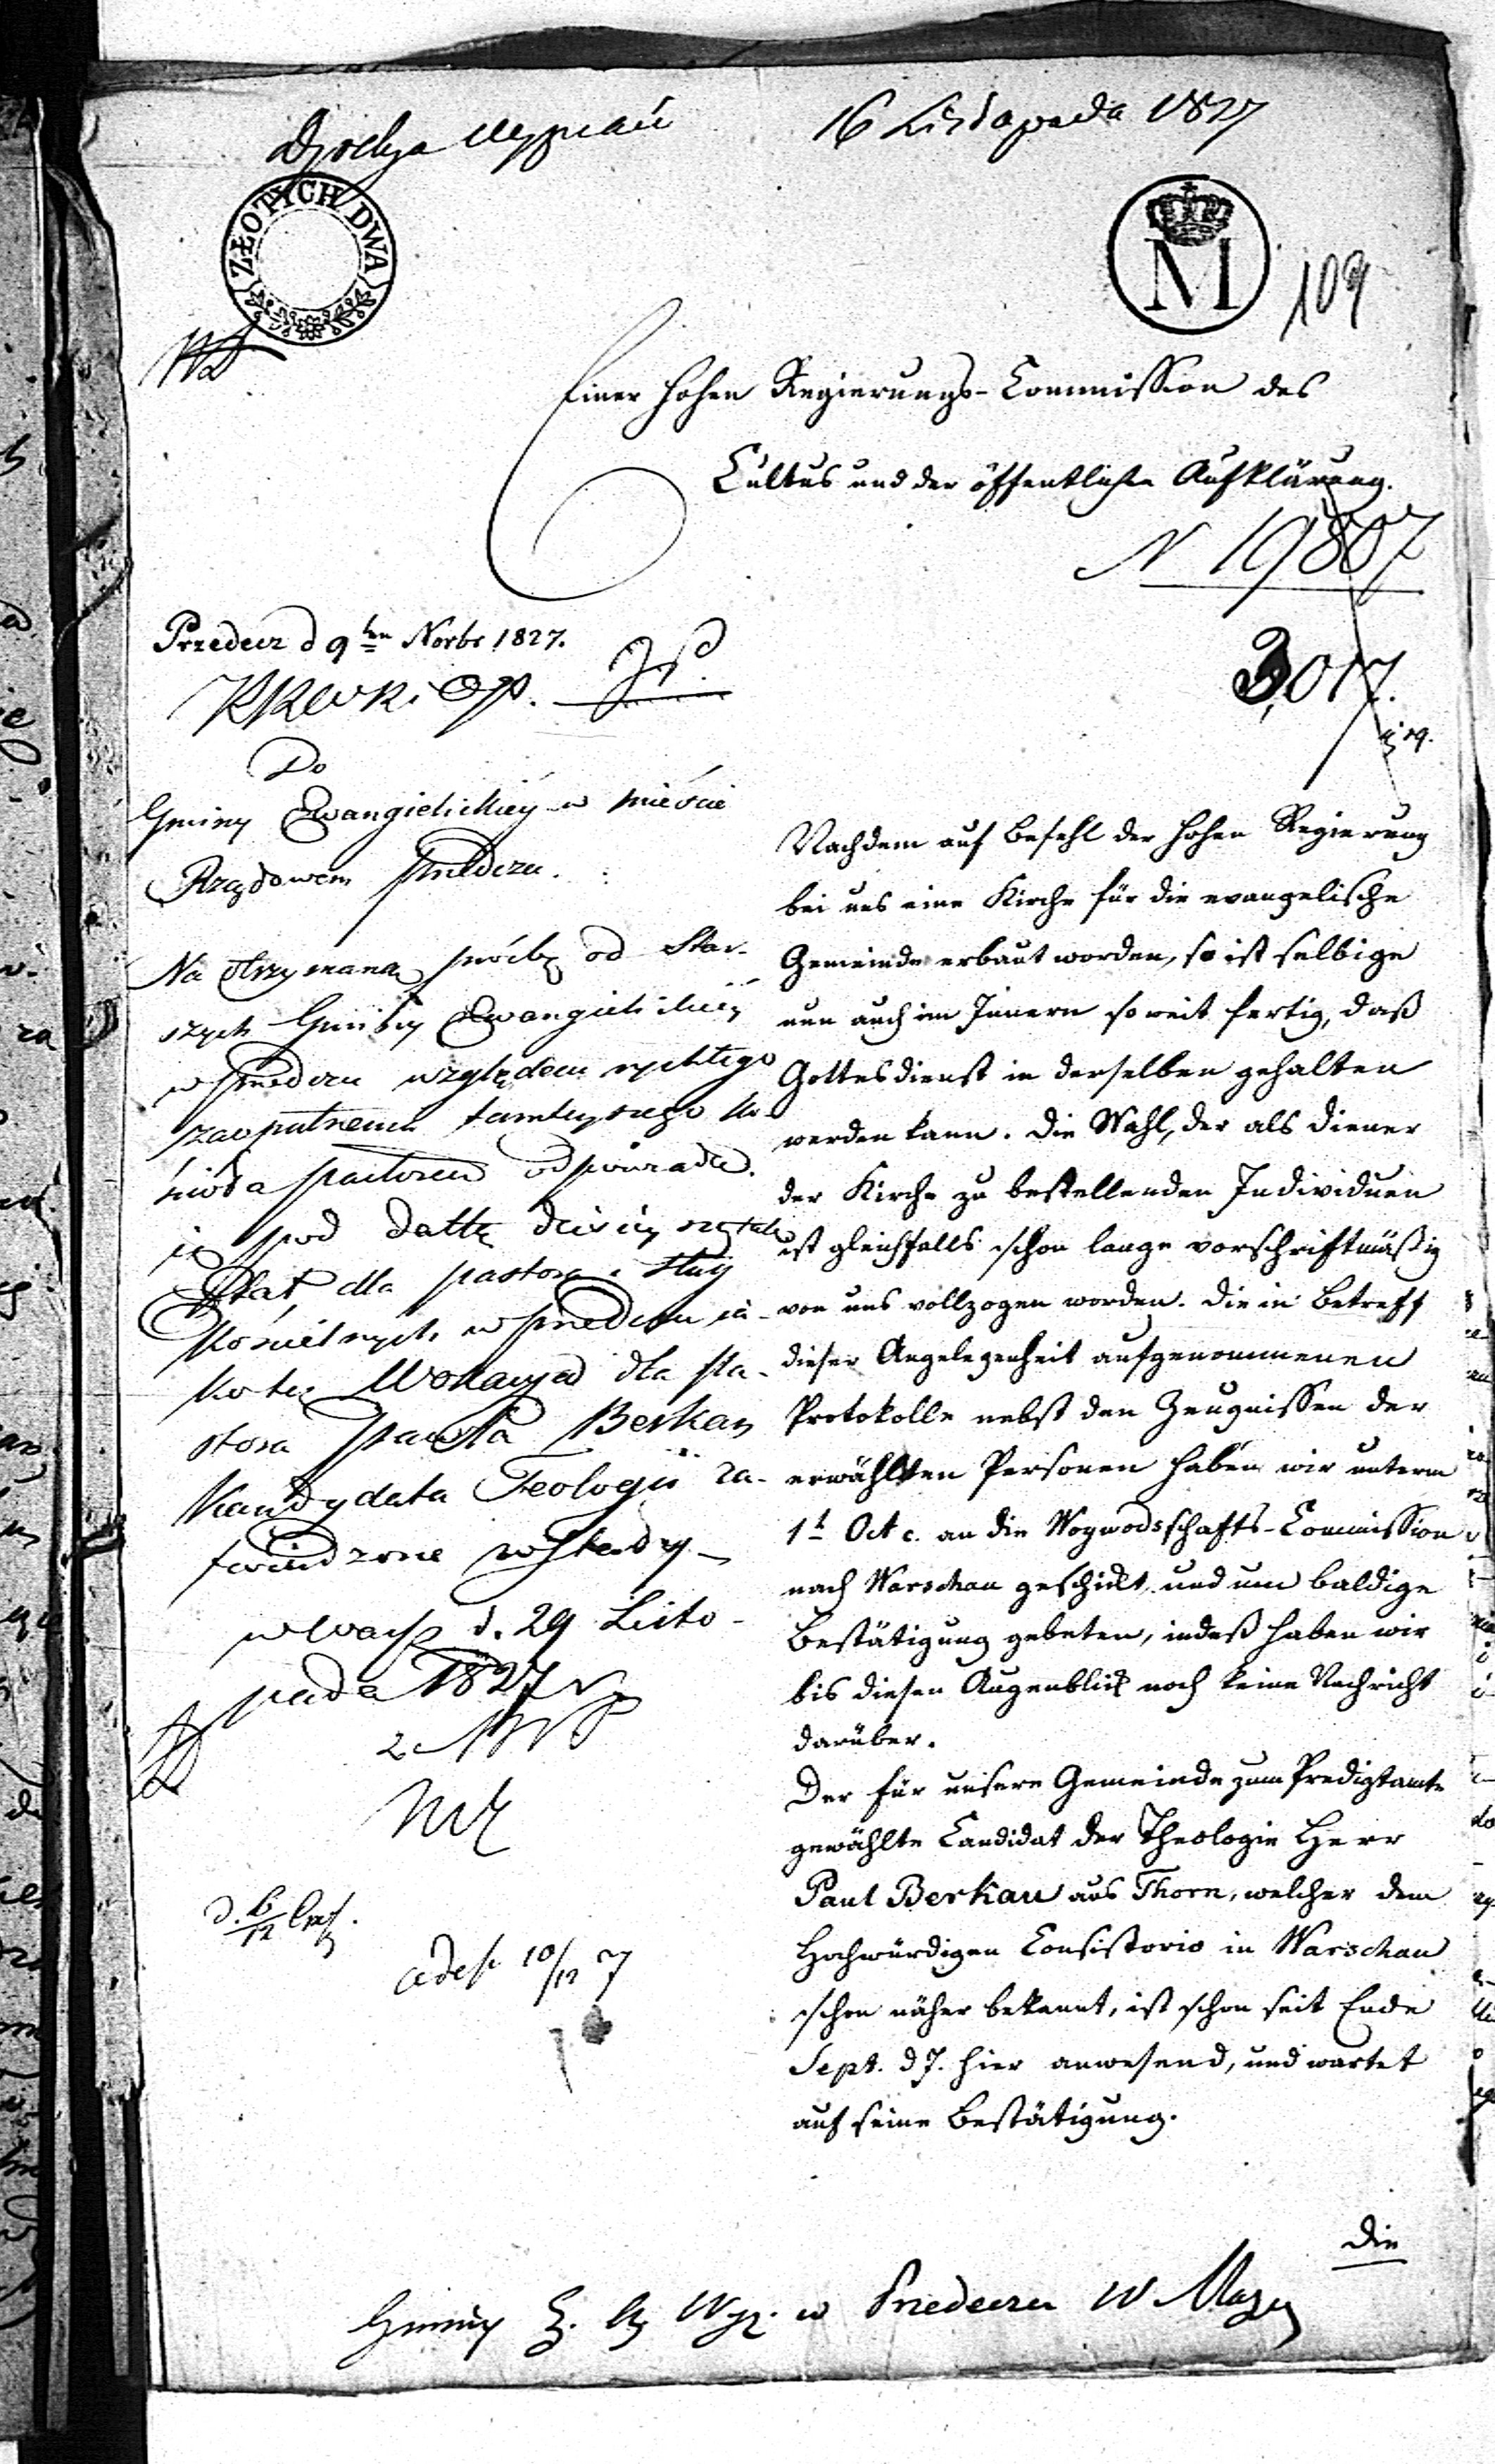 16 Listopada 1827
ZŁOTYCH DWA
M
109
Einer hohen Regierungs-Commission des
Cultus und der öffentlichen Aufklärung.
N 19807
Przedecz d 9ten Novbr 1827.
3,017.
Do
Gminy Ewangielickiey w mieście
Rządowem Przedczu.
Na otrzymaną prośbę od Star-
szych Gminy Ewangielickiey
w Przedczu względem rychłego
zaopatrzenia tamteyszego ko-
ścioła pastorem odpowiada.
iż pod dattą dzisieyszą
Etat dla pastora i sług
kościelnych w Przedczu ia-
ko też Wokacya dla pa-
stora Pawła Berkau
Kandydata Teologii za-
twierdzone
d. 29 Listo-
pada 1827 r.
Nachdem auf Befehl der hohen Regierung
bei uns eine Kirche für die evangelische
Gemeinde erbaut worden, so ist selbige
nun auch im Innern so weit fertig, daß
Gottesdienst in derselben gehalten
werden kann. Die Wahl, der als Diener
der Kirche zu bestellenden Individuen
ist gleichfalls schon lange vorschriftmäßig
von uns vollzogen worden. Die in Betreff
dieser Angelegenheit aufgenommenen
Protokolle nebst den Zeugnissen der
erwählten Personen haben wir unterm
1t Oct c. an die Woywodschafts-Commission
nach Warschau geschickt und um baldige
Bestätigung gebeten, indeß haben wir
bis diesen Augenblick noch keine Nachricht
darüber.
Der für unsere Gemeinde zum Predigtamte
gewählte Candidat der Theologie Herr
Paul Berkau aus Thorn, welcher dem
Hochwürdigen Consistorio in Warschau
schon näher bekannt, ist schon seit Ende
Sept. d J. hier anwesend, und wartet
auf seine Bestätigung.
Die
Gminy w Przedczu W Maz